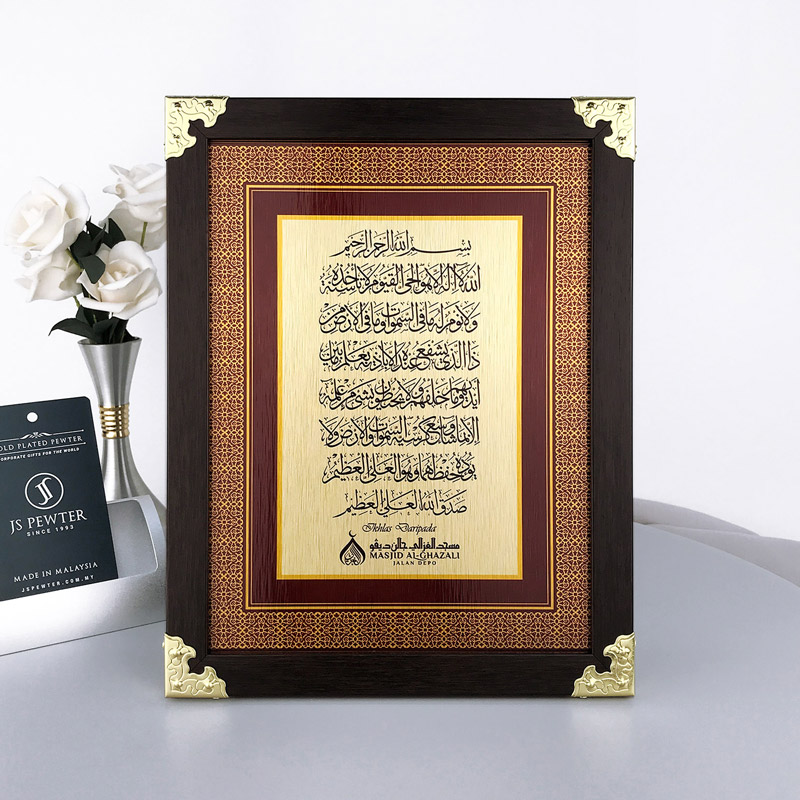 بسم الله الرحمن الرحيم
الله لا اله الا هو الحي القيوم لا تأخذه سنة
ولا نوم له ما في السموات وما في الارض من
ذا الذي يشفع عنده الا باذنه يعلم ما بين
أيديهم وما خلفهم ولا يحيطون بشئ من علمه
الا بما شاء وسع كرسيه السموات والارض ولا
يوده حفظهما وهو العلي العظيم
صدق الله العلي العظيم
Ikhlas Daripada
مسجد الغزالي جالن ديڤو
MASJID AL-GHAZALI
JALAN DEPO
OLD PLATED PEWTER
ORPORATE GIFTS FOR THE WORLD
JS PEWTER
SINCE 1993
MADE IN MALAYSIA
JSPEWTER.COM.MY